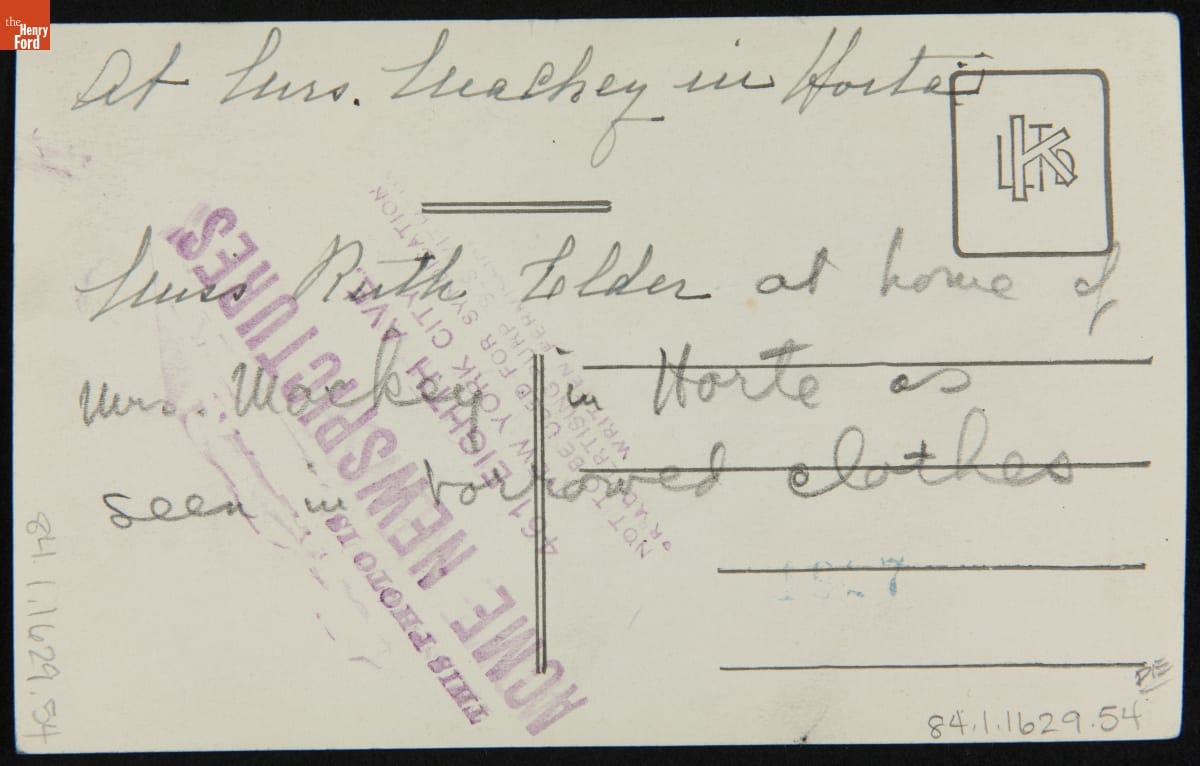 the
Henry
Ford
At Mrs. Mackey in Horta
LKTD
Miss Ruth Elder at home of
Mrs. Mackey in Horte as
seen in borrowed clothes
1927
THIS PHOTO IS
ACME NEWSPICTURES
461 EIGHTH AVE.
NEW YORK CITY
NOT TO BE USED FOR
OR ADVERTISING
WRITTEN
84.1.1629.54
PE
84.1.1629.54